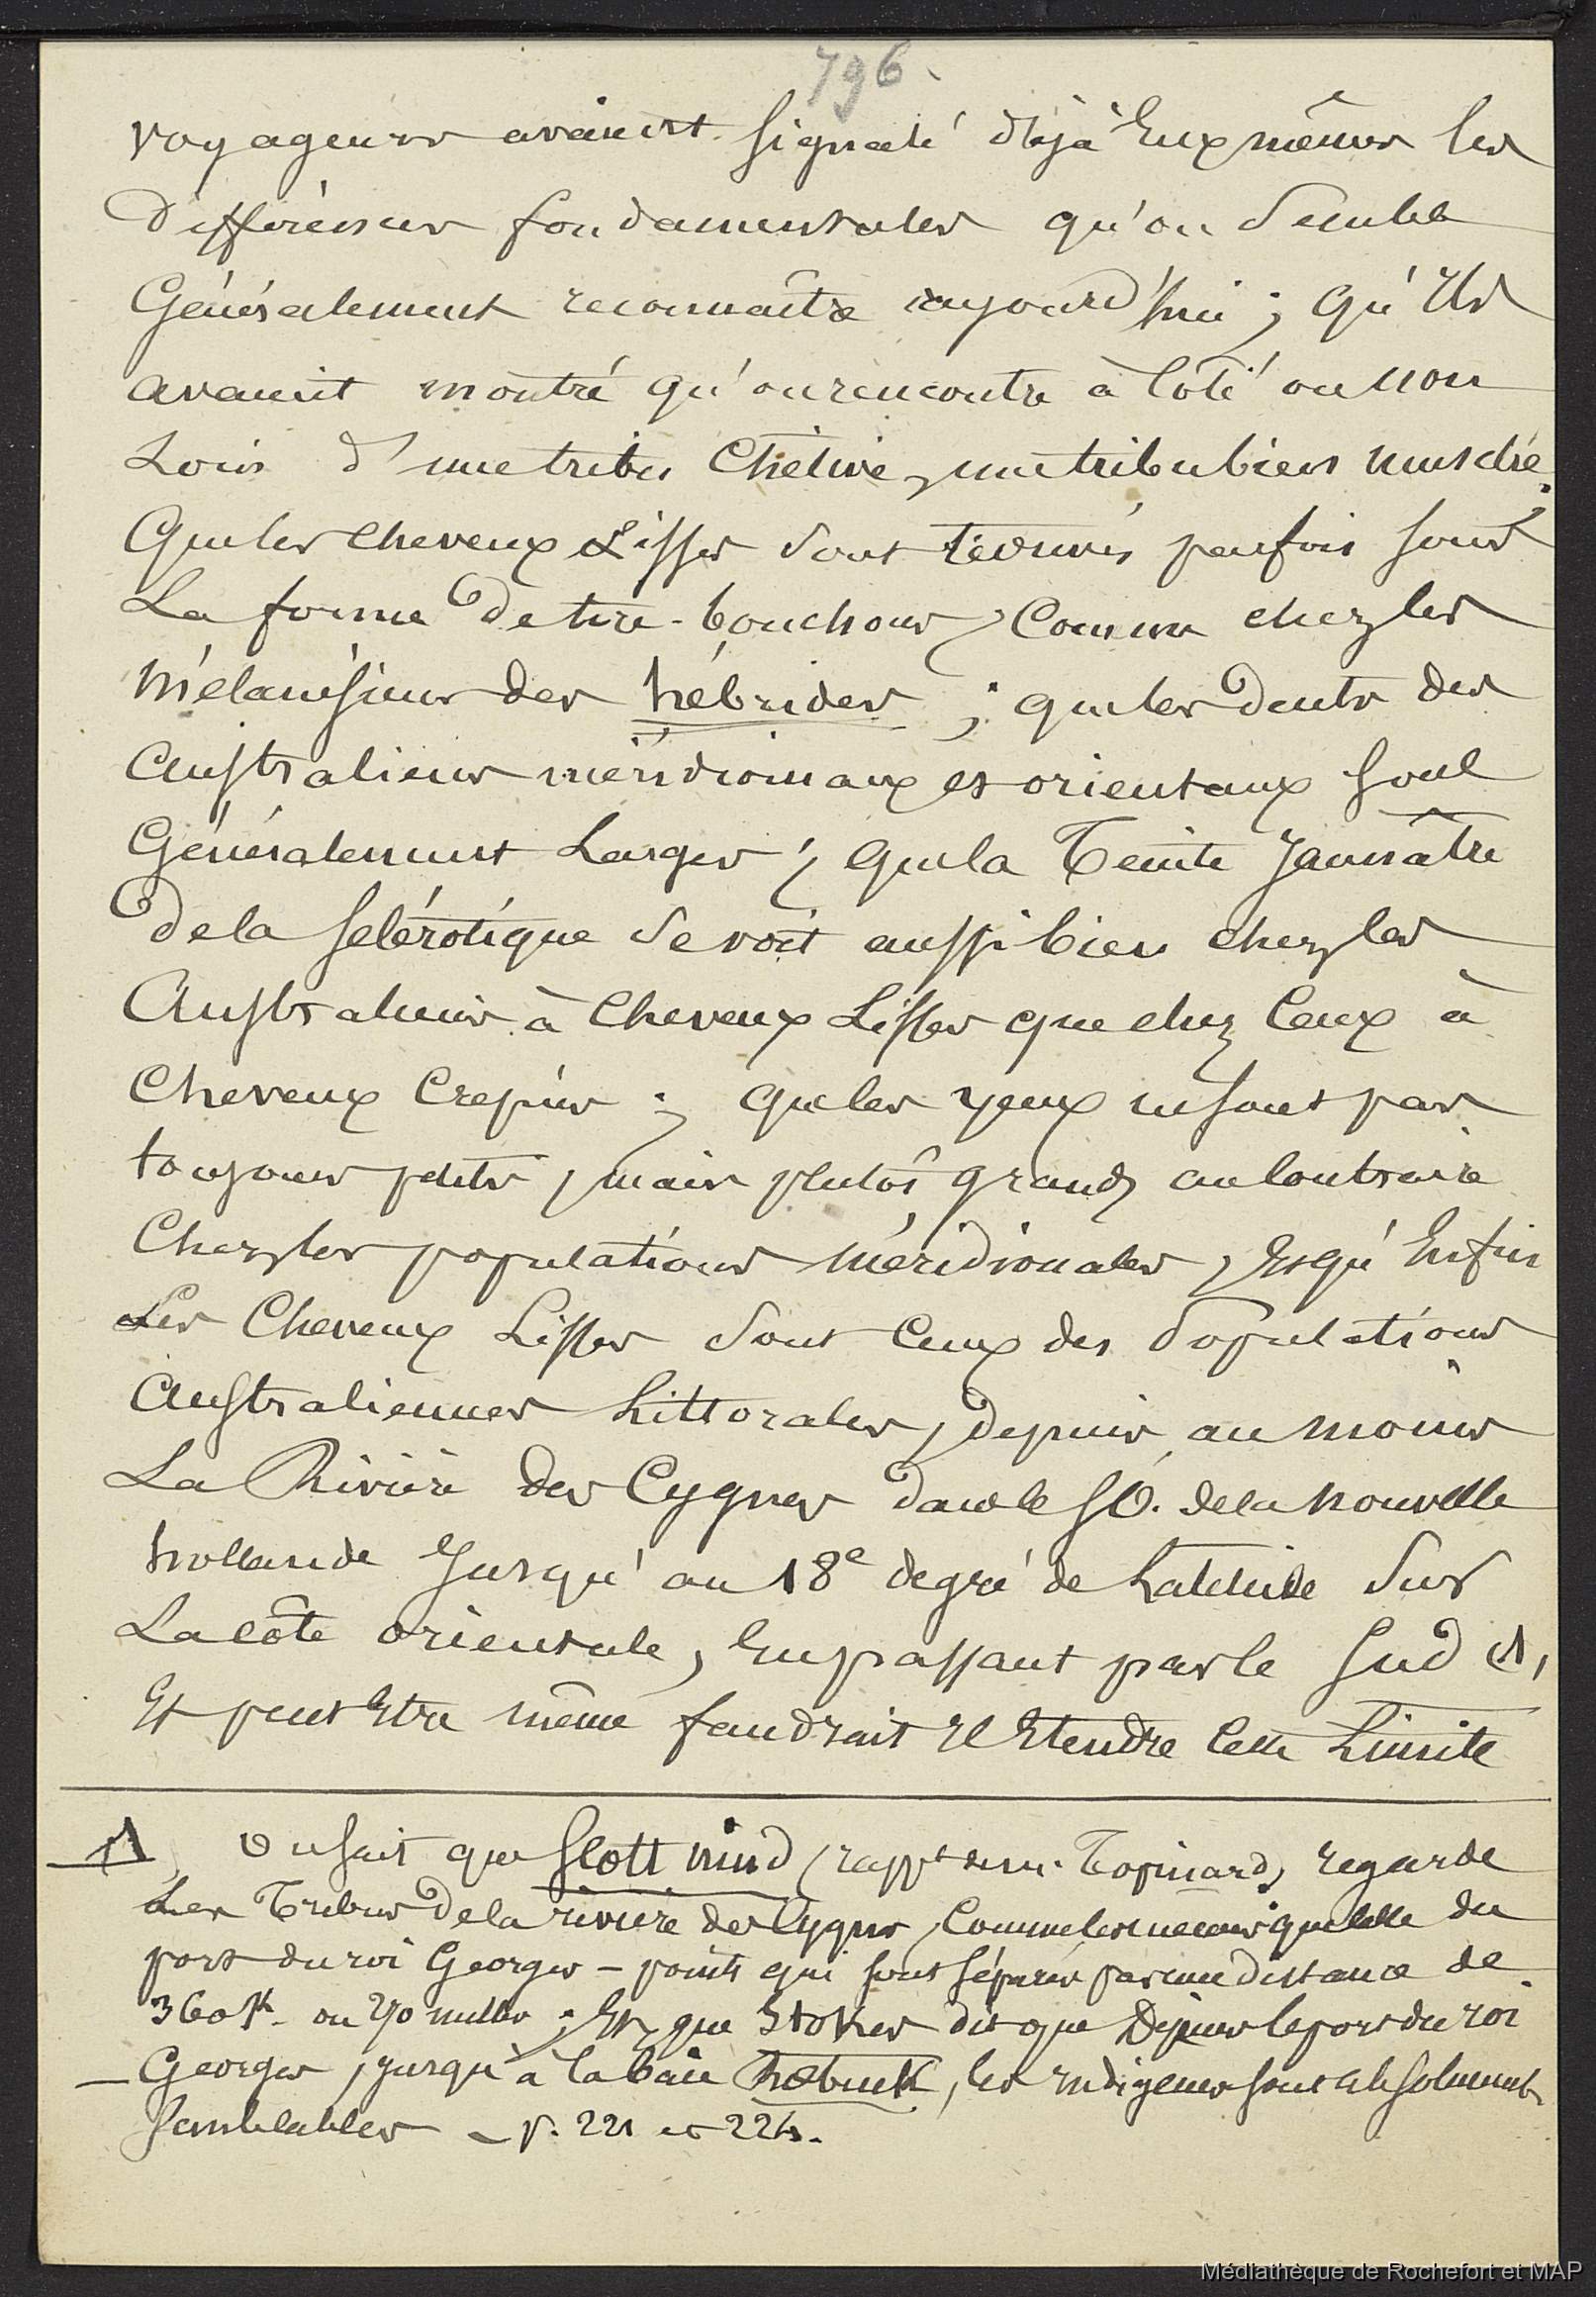 796.
voyageurs avaient signalé déjà Eux mêmes les
différences fondamentales qu'on semble
Généralement reconnaître aujourd'hui ; qu'Ils
avaient montré qu'on rencontre à côté ou non
Loin d'une tribu Chétive, une tribu bien musclée,
Que les cheveux Lisses sont terminés parfois sous
La forme de tire-bouchons, Comme chez les
Mélanésiens des hébrides ; que les dents des
Australiens méridionaux et orientaux sont
Généralement Larges ; que la Teinte jaunâtre
de la sclérotique se voit aussi bien chez les
Australiens à Cheveux Lisses que chez Ceux à
Cheveux Crépus ; que les yeux ne sont pas
toujours petits, mais plutôt grands au Contraire
Chez les populations Méridionales, Et qu'Enfin
Les Cheveux Lisses sont Ceux des Populations
Australiennes Littorales, depuis au moins
La Rivière des Cygnes dans le SO. de la Nouvelle
hollande Jusqu'au 18e degré de Latitude Sur
La côte orientale, En passant par le Sud (1,
Et peut Etre même faudrait Il Etendre Cette Limite
1 On sait que Scott Nind (rappt Topinard, regarde
Les Tribus de la rivière des Cygnes, Comme les mêmes que celle du
port du roi Georges – points qui sont séparés par une distance de
360 K. ou 270 milles ; Et, que Stokes dit que Depuis le port du roi
Georges, jusqu'à la baie Rœbuck, les Indigènes sont absolument
Semblables – p. 221 et 224.
Médiathèque de Rochefort et MAP